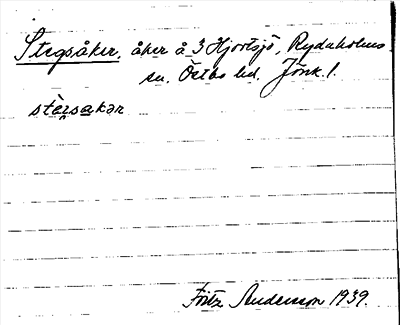 Stegsåker, åker å 3 Hjortsjö, Rydaholms
sn. Östbo hd. Jönk. l.
stẹrsakər
Fritz Andersson 1939.